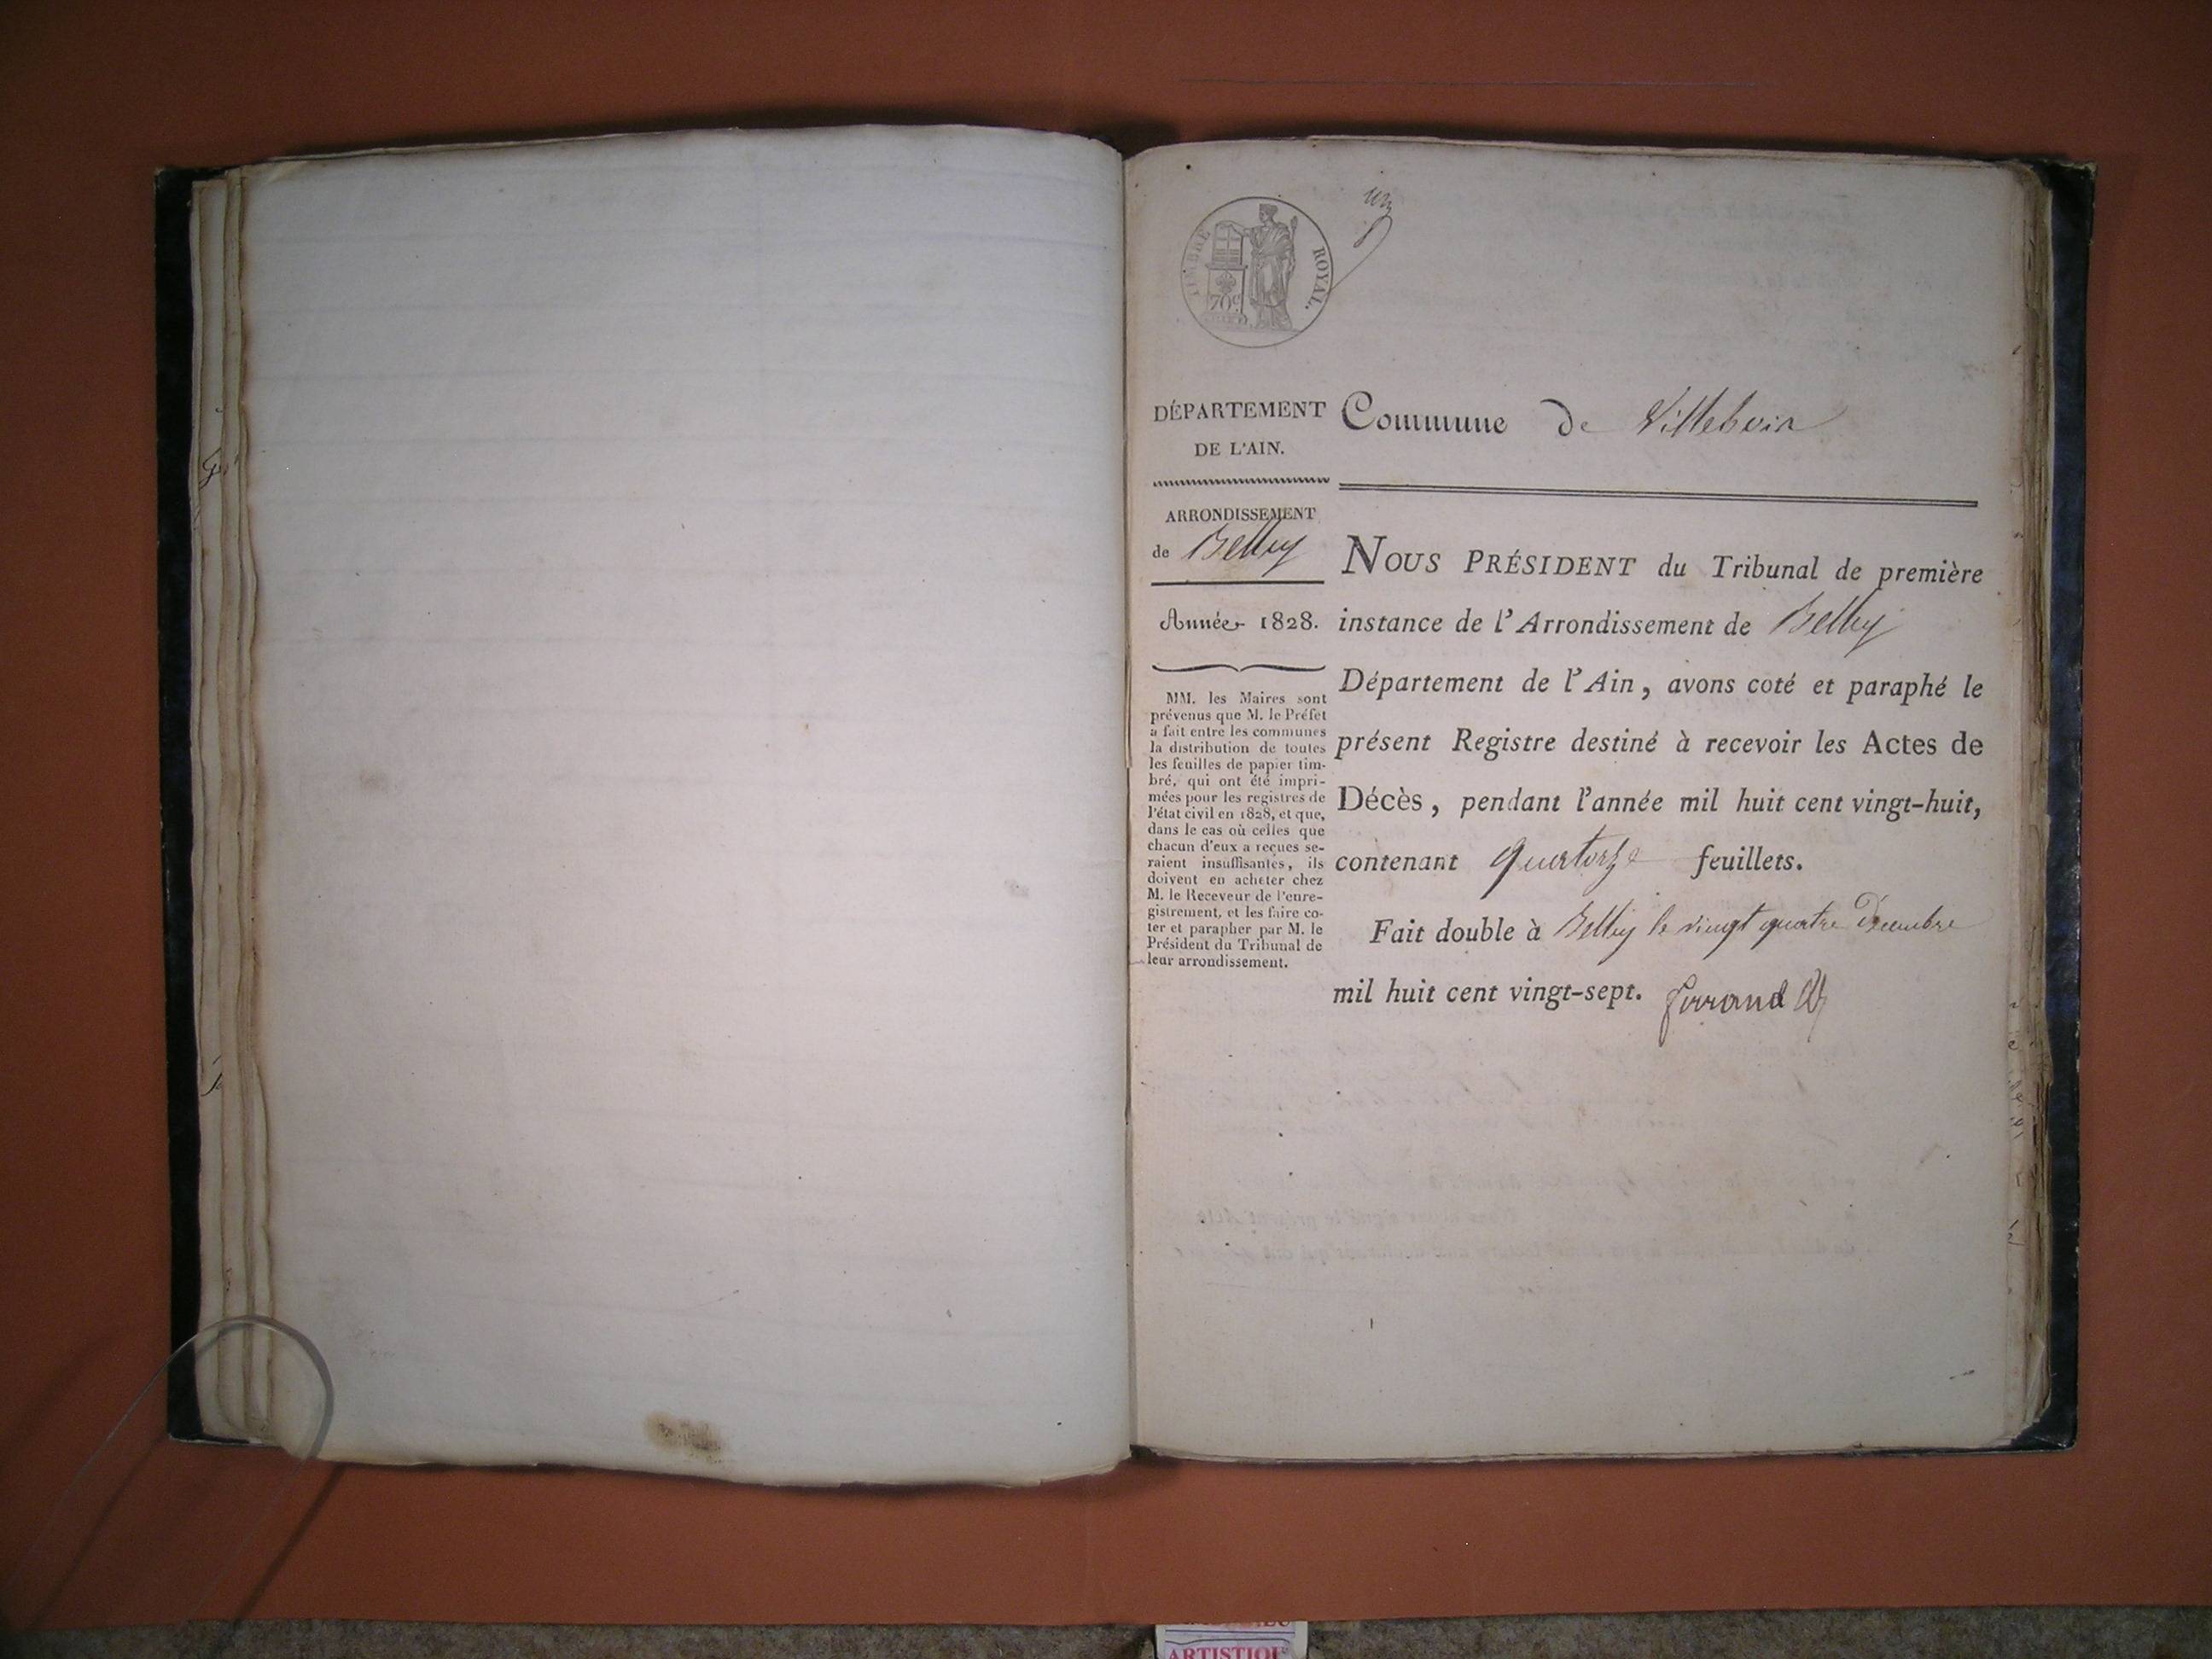 un
TIMBRE ROYAL.
70c.
DÉPARTEMENT
DE L'AIN.
ARRONDISSEMENT
de Belley
Année 1828.
MM. les Maires sont
prévenus que M. le Préfet
a fait entre les communes
la distribution de toutes
les feuilles de papier tim-
bré, qui ont été impri-
mées pour les registres de
l'état civil en 1828, et que,
dans le cas où celles que
chacun d'eux a reçues se-
raient insuffisantes, ils
doivent en acheter chez
M. le Receveur de l'enre-
gistrement, et les faire co-
ter et parapher par M. le
Président du Tribunal de
leur arrondissement.
Commune de Villebois
NOUS PRÉSIDENT du Tribunal de première
instance de l'Arrondissement de Belley
Département de l'Ain, avons coté et paraphé le
présent Registre destiné à recevoir les Actes de
Décès, pendant l'année mil huit cent vingt-huit,
contenant quatorze feuillets.
Fait double à Belley le vingt quatre Décembre
mil huit cent vingt-sept.
ARTISTIQU